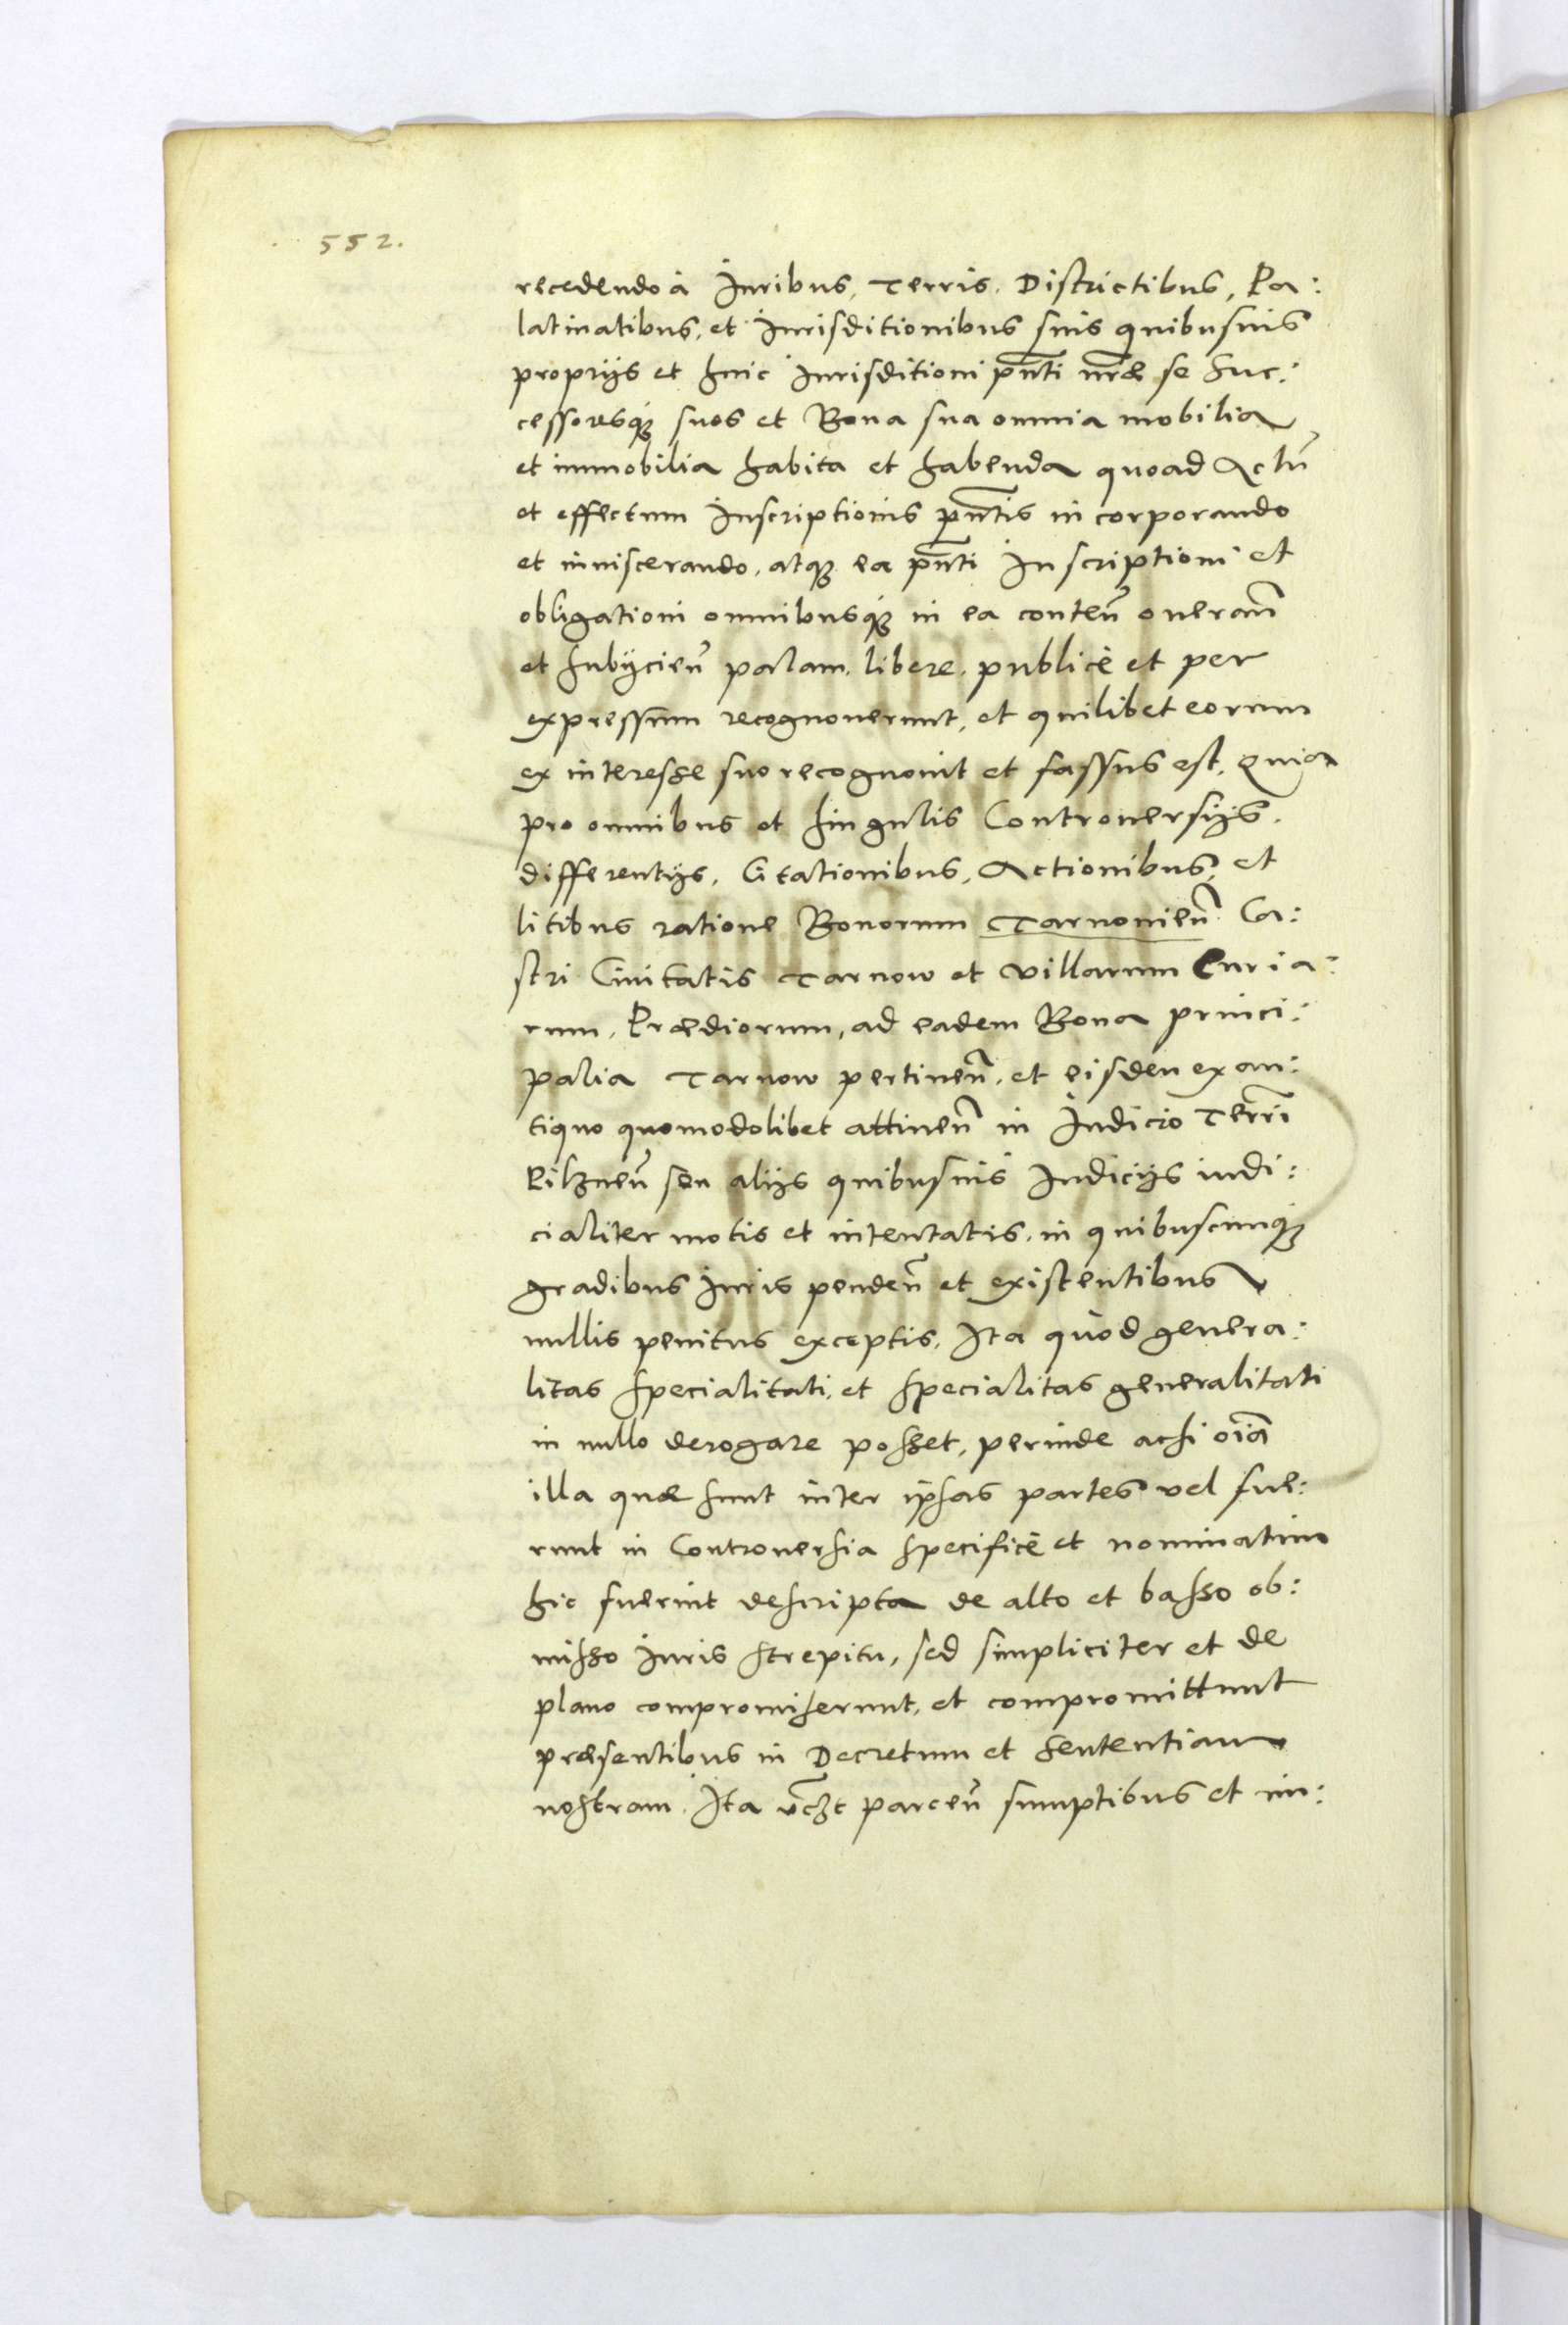 552.
recedendo à Iuribus, Terris, Districtibus, Pa:
latinatibus, et Iurisditionibus suis quibusuis
proprijs et huic Iurisditioni pñti nr̃æ se Suc:
cessoresq́ue suos et Bona sua omnia mobilia
et immobilia habita et habenda quoad Actũ
et effectum Inscriptionis pñtis incorporando
et inuiscerando, atq; ea pñti Inscriptioni et
obligationi omnibusq́; in ea conteñ oneram̃
et subijcieñ palam, libere, publicè et per
expressum recognouerunt, et quilibet eorum
ex interesse suo recognouit et fassus est, Quia
pro omnibus et singulis Controuersijs,
differentijs, Citationibus, Actionibus, et
litibus ratione Bonorum Tarnouieñ Ca:
stri Ciuitatis Tarnow et villarum Curia:
rum, Prædiorum, ad eadem Bona princi:
palia Tarnow pertineñ, et eisdem ex an:
tiquo quomodolibet attineñ in Iudicio Terrĩ
Pilzneñ seu alijs quibusuis Iudicijs iudi:
cialiter motis et intentatis, in quibuscunq́;
gradibus Iuris pendeñ et existentibus
nullis penitus exceptis, Ita quòd genera:
litas specialitati, et specialitas generalitati
in nullo derogare posset, perinde acsi oĩa
illa quæ sunt inter ipsas partes vel fue:
runt in Controuersia specificè et nominatim
hic fuerint descripta de alto et basso ob:
misso Iuris strepitu, sed simpliciter et de
plano compromiserunt, et compromittunt
præsentibus in Decretum et Sententiam
nostram. Ita vc̃zt parceñ sumptibus et im: